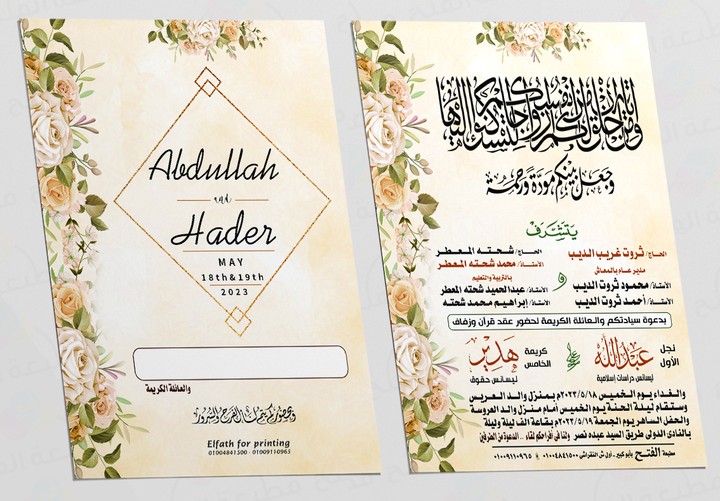 Abdullah
and
Hader
MAY
18th&19th
2023
والعائلة الكريمة
وبحضوركم يتم لنا الفرح والسرور
Elfath for printing
01004841500 - 01009110965
ومن آياته أن خلق لكم من أنفسكم أزواجا لتسكنوا إليها
وجعل بينكم مودة ورحمة
يتشرف
الحاج/ ثروت غريب الديب
مدير عام بالمعاش
الأستاذ/ محمود ثروت الديب
الأستاذ/ أحمد ثروت الديب
و
الحاج/ شحته المعطر
الأستاذ/ محمد شحته المعطر
بالتربية والتعليم
الأستاذ/ عبدالحميد شحته المعطر
الأستاذ/ إبراهيم محمد شحته
بدعوة سيادتكم والعائلة الكريمة لحضور عقد قرآن وزفاف
نجل الأول
عبدالله
ليسانس دراسات إسلامية
على
كريمة الخامس
هدير
ليسانس حقوق
والغداء يوم الخميس ٢٠٢٣/٥/١٨م بمنزل والد العريس
وستقام ليلة الحنة يوم الخميس أمام منزل والد العروسة
والحفل الساهر يوم الجمعة ٢٠٢٣/٥/١٩م بقاعة ألف ليلة وليلة
بالنادى الدولى طريق السيد عبده نصر ولنا فى أفراحكم لقاء .. الدعوة من الطرفين
مطبعة الفتح بأبوكبير .. أول ش النقراشي ٠١٠٠٤٨٤١٥٠٠ & ٠١٠٠٩١١٠٩٦٥